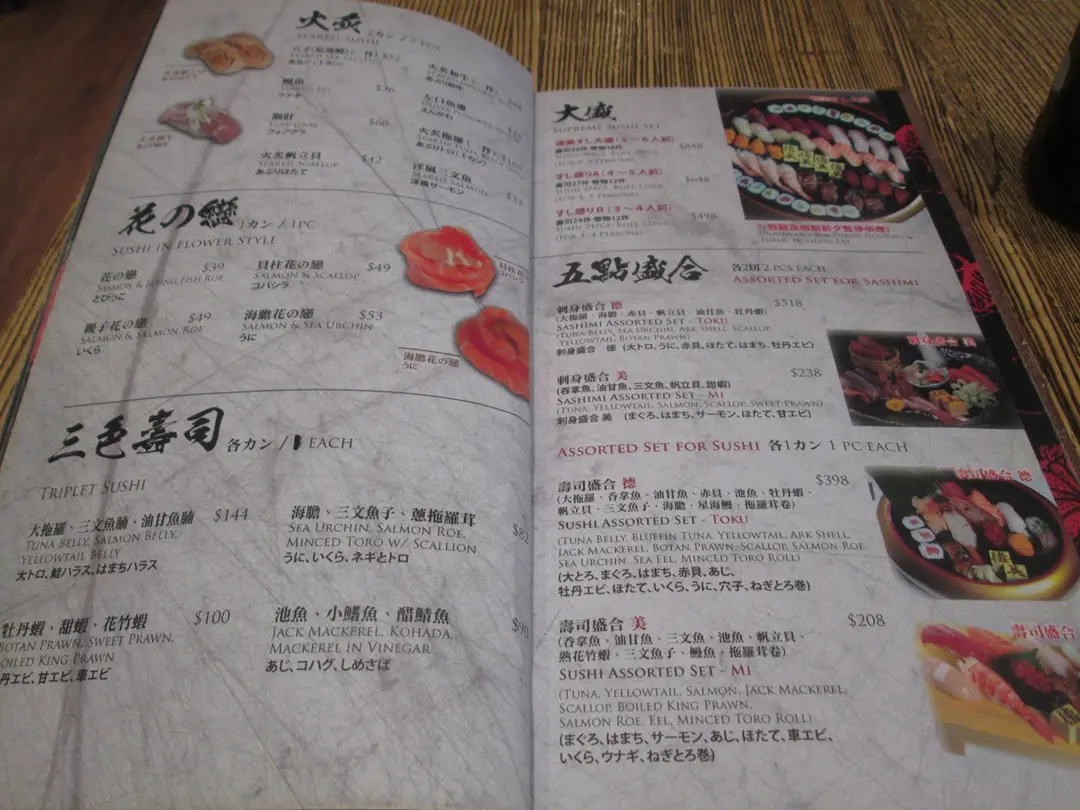 火炙 2カン / 2 PCS
SEARED SUSHI
$52
鰻魚 $36
SEARED EEL
ウナギ
鵝肝 $60
FOIE GRAS
フォアグラ
火炙帆立貝 $42
SEARED SCALLOP
あぶりほたて
火炙和牛
あぶり和牛
左口魚邊
えんがわ
火炙拖羅
洋風三文魚 $33
SEARED SALMON
洋風サーモン
花の戀 1カン / 1PC
SUSHI IN FLOWER STYLE
花の戀 $39
SALMON & FLYING FISH ROE
とびっこ
貝柱花の戀 $49
SALMON & SCALLOP
コバシラ
親子花の戀 $49
SALMON & SALMON ROE
いくら
海膽花の戀 $53
SALMON & SEA URCHIN
うに
海膽花の戀
うに
三色壽司 各カン / EACH
TRIPLET SUSHI
大拖羅、三文魚腩、油甘魚腩 $144
TUNA BELLY, SALMON BELLY,
YELLOWTAIL BELLY
太トロ、鮭ハラス、はまちハラス
海膽、三文魚子、蔥拖羅茸 $82
SEA URCHIN, SALMON ROE,
MINCED TORO W/ SCALLION
うに、いくら、ネギとトロ
牡丹蝦、甜蝦、花竹蝦 $100
BOTAN PRAWN, SWEET PRAWN,
BOILED KING PRAWN
丹エビ、甘エビ、車エビ
池魚、小鰭魚、醋鯖魚 $90
JACK MACKEREL, KOHADA,
MACKEREL IN VINEGAR
あじ、コハグ、しめさば
大盛
SUPREME SUSHI SET
(5~6人前) $848
すし盛りA(4~5人前) $648
壽司27件 卷物12件
(FOR 4-5 PERSONS)
すし盛りB(3~4人前) $498
壽司24件 卷物12件
SUSHI 24PCS, ROLL 12PCS
(FOR 3-4 PERSONS)
五點盛合 各2切 2 PCS EACH
ASSORTED SET FOR SASHIMI
刺身盛合 德 $518
(大拖羅、海膽、赤貝、帆立貝、油甘魚、牡丹蝦)
SASHIMI ASSORTED SET - TOKU
(TUNA BELLY, SEA URCHIN, ARK SHELL, SCALLOP,
YELLOWTAIL, BOTAN PRAWN)
刺身盛合 德 (大トロ、うに、赤貝、ほたて、はまち、牡丹エビ)
刺身盛合 美 $238
(吞拿魚、油甘魚、三文魚、帆立貝、甜蝦)
SASHIMI ASSORTED SET - MI
(TUNA, YELLOWTAIL, SALMON, SCALLOP, SWEET PRAWN)
刺身盛合 美 (まぐろ、はまち、サーモン、ほたて、甘エビ)
ASSORTED SET FOR SUSHI 各1カン 1 PC EACH
壽司盛合 德 $398
(大拖羅、吞拿魚、油甘魚、赤貝、池魚、牡丹蝦、
帆立貝、三文魚子、海膽、星海鰻、拖羅茸卷)
SUSHI ASSORTED SET - TOKU
(TUNA BELLY, BLUEFIN TUNA, YELLOWTAIL, ARK SHELL,
JACK MACKEREL, BOTAN PRAWN, SCALLOP, SALMON ROE,
SEA URCHIN, SEA EEL, MINCED TORO ROLL)
(大とろ、まぐろ、はまち、赤貝、あじ、
牡丹エビ、ほたて、いくら、うに、穴子、ねぎとろ巻)
壽司盛合 德
壽司盛合 美 $208
(吞拿魚、油甘魚、三文魚、池魚、帆立貝、
熟花竹蝦、三文魚子、鰻魚、拖羅茸卷)
SUSHI ASSORTED SET - MI
(TUNA, YELLOWTAIL, SALMON, JACK MACKEREL,
SCALLOP, BOILED KING PRAWN,
SALMON ROE, EEL, MINCED TORO ROLL)
(まぐろ、はまち、サーモン、あじ、ほたて、車エビ、
いくら、ウナギ、ねぎとろ巻)
壽司盛合